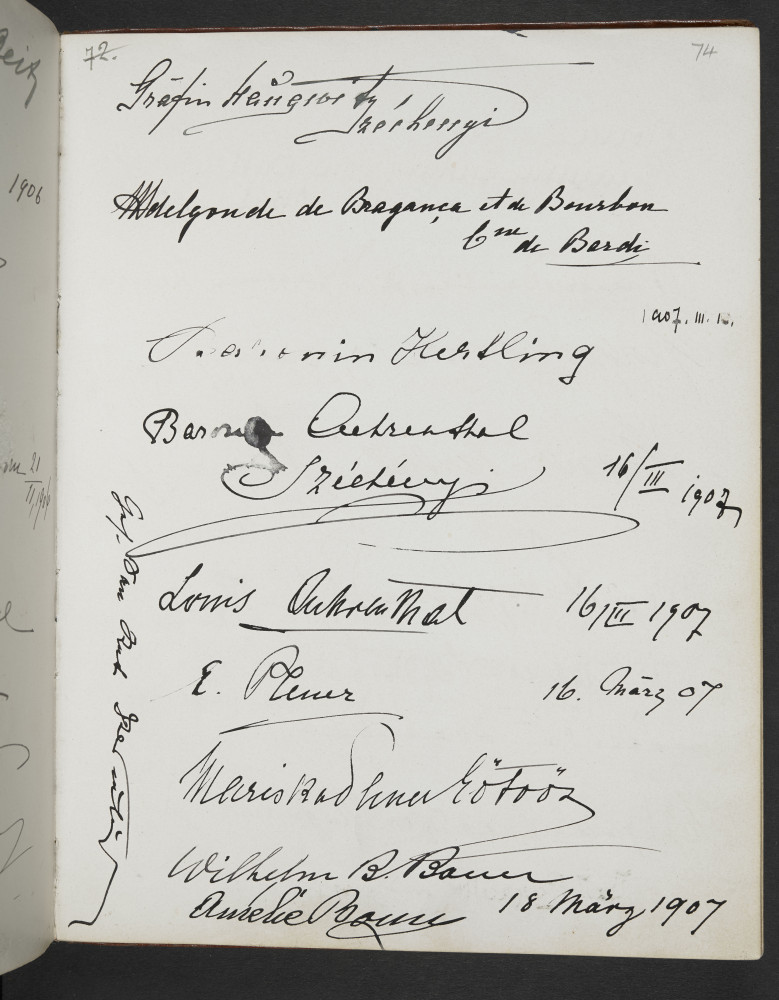 72.
74
Gräfin Haugwitz
Széchenyi
Adelgonde de Bragança et de Bourbon
Ctsse de Bardi
1907. III. 1
Hertling
Baronin Aehrenthal
Széchényi
16/III 1907
Louis Aehrenthal
16/III 1907
E. Plener
16. März 07
Mariska Plener Eötvös
Wilhelm B. Bauer
Aurelie Bauer 18 März 1907
1906
21